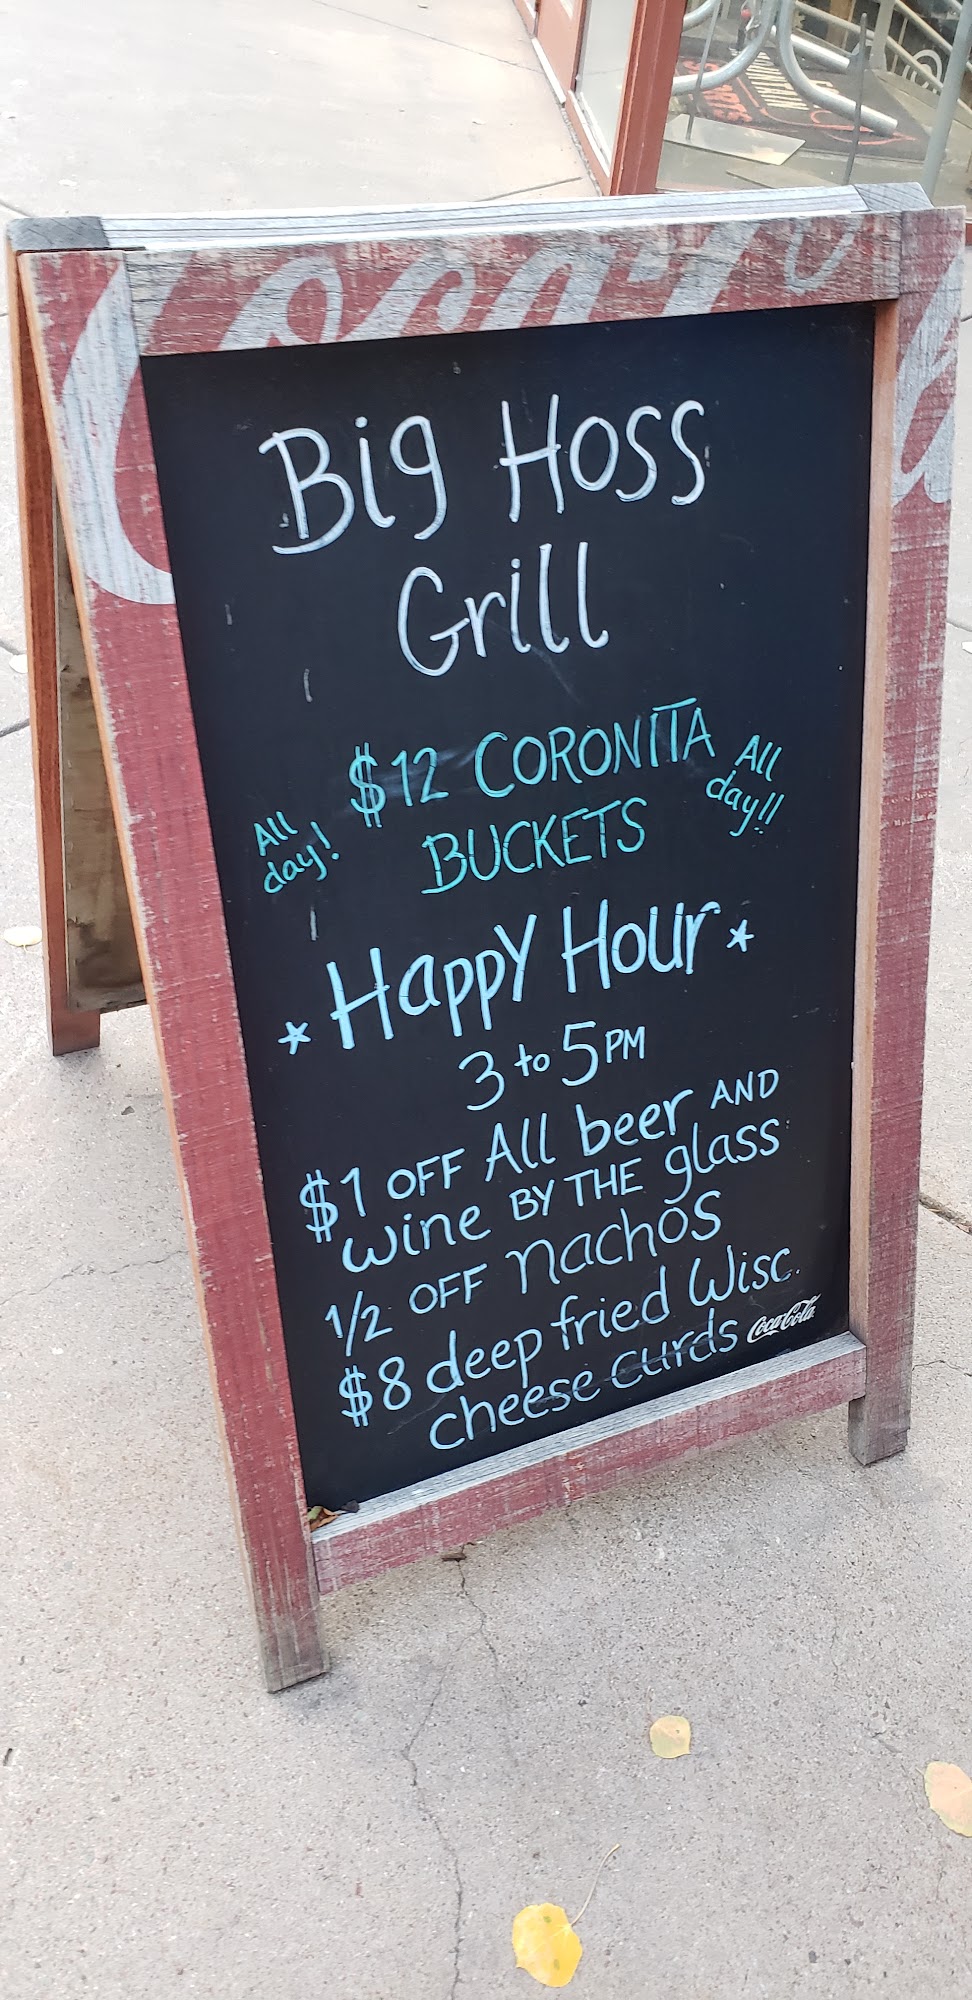 Coca-Cola
Big Hoss
Grill
$12 CORONITA
BUCKETS
All
day!
All
day!!
* Happy Hour *
3 to 5 PM
$1 OFF All beer AND
wine BY THE glass
1/2 OFF nachos
$8 deep fried Wisc.
cheese curds
Coca-Cola